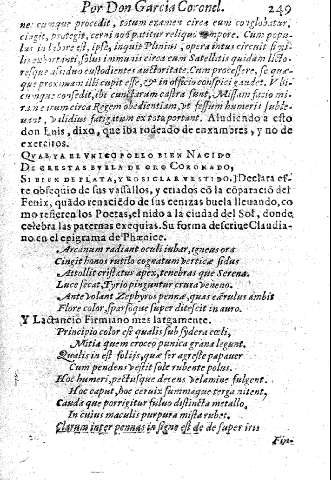 Por Don Garcia Coronel. 249
ne cumque procedit, totum examen circa eum conglobatur,
cingit, protegit, cerni non patitur reliquo tempore. Cum popu-
lus in labore est, ipse, inquit Plinius, opera intus circuit simi-
lis exhortanti, solus immunis circa eum Satellites quidam licto-
resque assiduo custodientes auctoritate. Cum processere, se quæ-
que proximam illi cupit esse, & in officio conspici gaudet. Vbi-
cumque consedit, ibi cunctarum castra sunt, Missam facio mi-
ram earum circa Regem obedientiam, vt fessum humeris suble-
uent, validius fatigatum ex toto portant. Aludiendo a esto
don Luis, dixo, que iba rodeado de enxambres, y no de
exercitos.
QVAL YA EL VNICO POLLO BIEN NACIDO
DE CRESTAS BVELA DE ORO CORONADO,
SI BIEN DE PLATA, Y ROSICLER VESTIDO.) Declara es-
te obsequio de sus vassallos, y criados cõ la cõparaciõ del
Fenix, quãdo renaciẽdo de sus cenizas buela lleuando, co
mo refieren los Poetas, el nido a la ciudad del Sol, donde
celebra las paternas exequias. Su forma descriue Claudia-
no en el epigrama de Phœnice.
Arcanum radiant oculi iubar, igneus ora
Cingit honos rutilo cognatum vertice sidus
Attollit cristatus apex, tenebras que Serena
Luce secat, Tyrio pinguntur crura veneno.
Ante volant Zephyros pennæ, quas cærulus ambit
Flore color, sparsoque super ditescit in auro.
Y Lactancio Firmiano mas largamente.
Principio color est qualis sub sydera cœli,
Mitia quem croceo punica grana legunt.
Qualis in est folijs, quæ fer agreste papauer
Cum pendens vestit sole rubente polus.
Hoc humeri, pectusque decens velamine fulgent.
Hoc caput, hoc ceruix summaque terga nitent,
Cauda que porrigitur fuluo distincta metallo,
In cuius maculis purpura mista rubet.
Clarum inter pennas in signe est de de super iris
Fin-